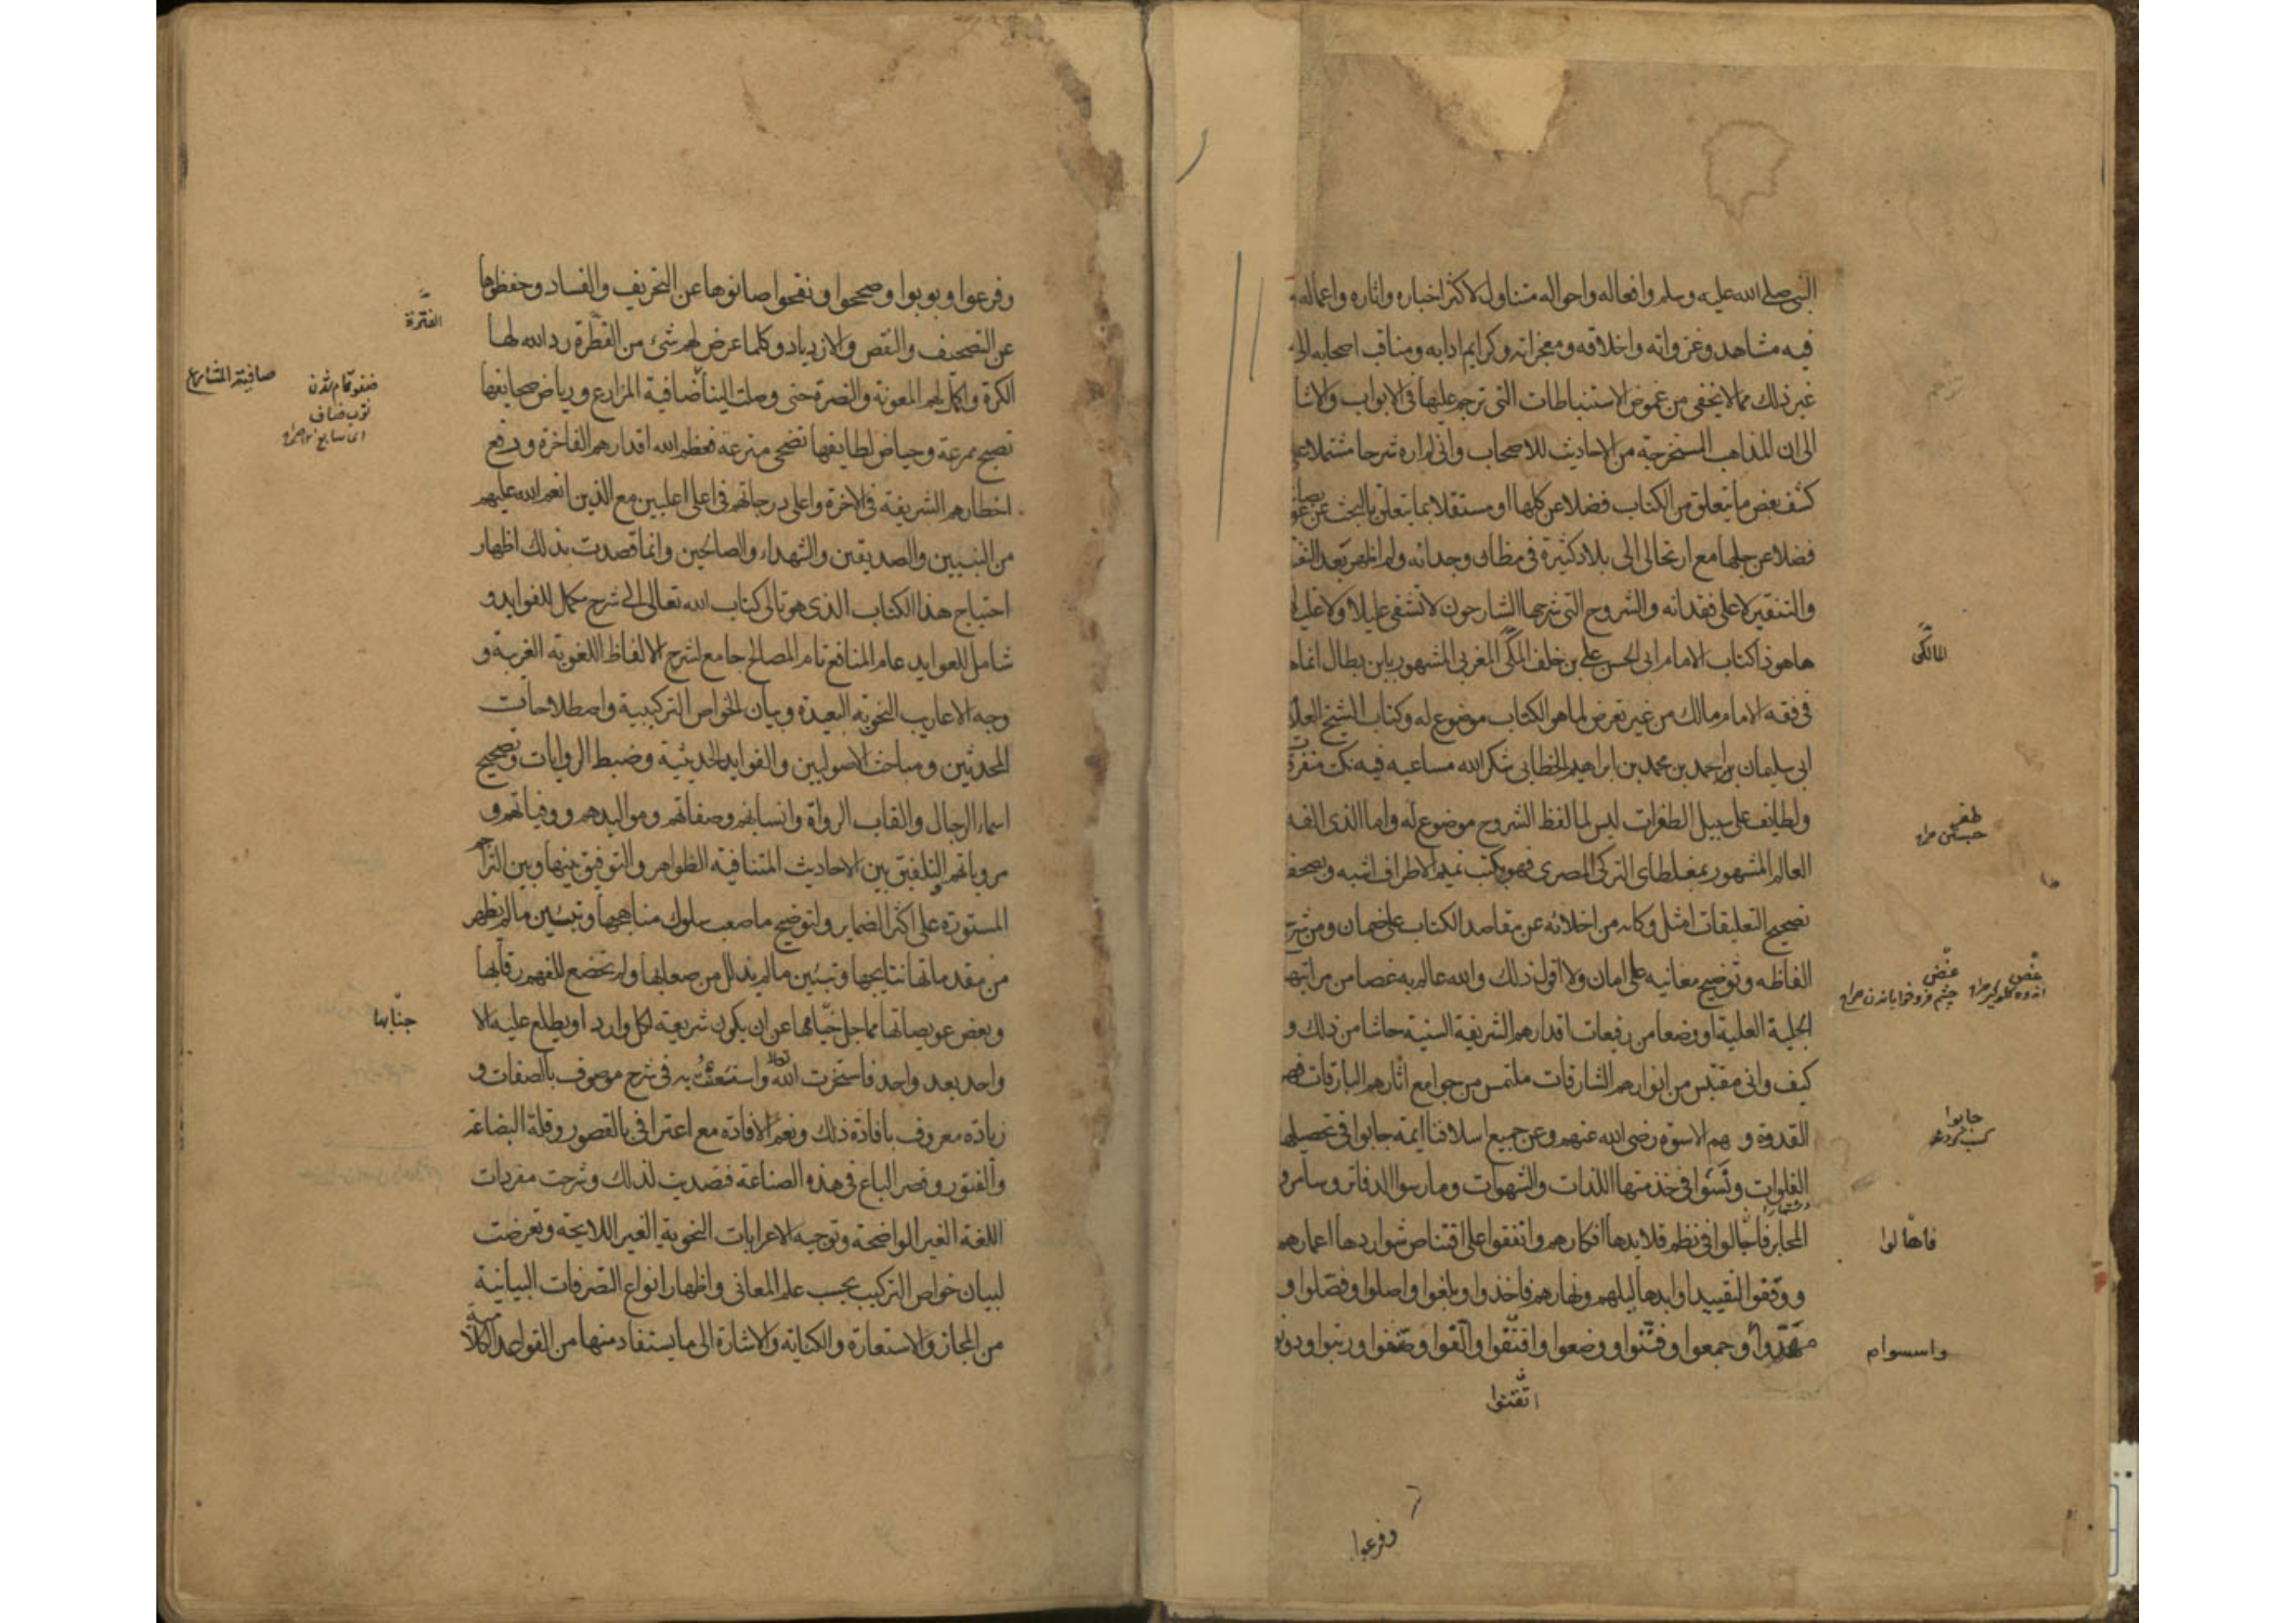 النبي صلى الله عليه وسلم وافعاله واحواله متناول لاكثر اخباره واثاره واعماله
فيه مشاهده وغزواته واخلاقه ومعجزاته وكرايم ادابه ومناقب اصحابه الى
غير ذلك مما لا يخفى من غموض الاستنباطات التي ترجم عليها في الابواب والاشا
الى ان المذاهب المستخرجة من الاحاديث للاصحاب واني لم اره شرحا مشتملا على
كشف بعض ما يتعلق من الكتاب فضلا عن كلها او مستقلا بما يتعلق بالبحث عن
فضلا عن جلها مع ارتحالي الى بلاد كثيرة في مظان وجدانه ولم اظهر بعد
والتنقير الا على فقدانه والشروح التي شرحها الشارحون لا تشفي عليلا ولا
ها هو ذا كتاب الامام ابي الحسن علي بن خلف المكي المغربي المشهور بابن بطال انما
المالكي
في فقه الامام مالك من غير تعرض لما هو الكتاب موضوع له وكتاب الشيخ
ابي سليمان بن احمد بن محمد بن ابراهيم الخطابي شكر الله مساعيه فيه نكت متفرقة
ولطايف على سبيل الطفرات ليس لما لفظ الشروح موضوع له واما الذي الفه
طفر
العالم المشهور بمغلطاي التركي المصري فهو بكتب تتميم الاطراف اشبه وبصحف
تصحيح التعليقات امثل وكانه من اخلائه عن مقاصد الكتاب على ضمان ومن شرح
الفاظه وتوضيح معانيه على امان ولا اقول ذلك والله عالم به غضا من مراتبهم
غض
غص
الجلية العلية او وضعا من رفيعات اقدارهم الشريفة السنية حاشا من ذلك و
كيف واني مقتبس من انوارهم الشارقات ملتمس من جوامع اثارهم البارقات فهم
القدوة و بهم الاسوة رضي الله عنهم وعن جميع اسلافنا ايمة جابوا في تحصيلها
جابوا
الفلوات ونسوا في خدمتها اللذات والشهوات ومارسوا الدفاتر وسامروا
المحابر فاجالوا في نظم قلايدها افكارهم وانفقوا على اقتناص شواردها اعمارهم
فاهالوا
ووقفوا لتقييد اوابدها ليلهم ونهارهم فاخذوا وبلغوا واصلوا وفصلوا و
مهدوا وجمعوا وفننوا ووضعوا وافتنوا والفوا وصنفوا ورتبوا ودونوا
واسسوا
اتقنوا
وفرعوا
وفرعوا وبوبوا وصححوا ونقحوا صانوها عن التحريف والفساد وحفظوها
عن التصحيف والنقص والازدياد وكلما عرض لهم شئ من الفطرة رد الله لها
الفترة
الكرة واكمل لهم المعونة والنصرة حتى وصلت الينا ضافية المزارع ورياض صحايفها
صافية المشارع
تصبح ممرعة وحياض لطايفها تضحى مترعة فعظم الله اقدارهم الفاخرة ورفع
اخطارهم الشريفة في الاخرة واعلى درجاتهم في اعلى اعليين مع الذين انعم الله عليهم
من النبيين والصديقين والشهداء والصالحين وانما قصدت بذلك اظهار
احتياج هذا الكتاب الذي هو تالي كتاب الله تعالى الى شرح مكمل للفوايد و
شامل للعوايد عام المنافع تام المصالح جامع لشرح الالفاظ اللغوية الغريبة و
وجه الاعاريب النحوية البعيدة وبيان الخواص التركيبية واصطلاحات
المحدثين ومباحث الاصوليين والفوايد الحديثية وضبط الروايات وتصحيح
اسماء الرجال والقاب الرواة وانسابهم وصفاتهم ومواليدهم ووفياتهم و
مروياتهم والتلفيق بين الاحاديث المتنافية الظواهر والتوفيق بينها وبين التراجم
المستورة على اكثر الضماير ولتوضيح ما صعب سلوك مناهجها وتبيين ما لم يظهر
من مقدماتها نتايجها وتبيين ما لم يذلل من صعابها ولم تخضع للفهم رقابها
وبعض عويصاتها مما جل خبامها عن ان يكون شريعة لكل وارد او يطلع عليه الا
جنابها
واحد بعد واحد فاستخرت الله تعالى واستعنت به في شرح موصوف بالصفات و
زيادة معروف بافادة ذلك ونعم الافادة مع اعترافي بالقصور وقلة البضاعة
والفتور وقصر الباع في هذه الصناعة فقصدت لذلك وشرحت مفردات
اللغة الغير الواضحة وتوجيه الاعرابات النحوية الغير اللايحة وتعرضت
لبيان خواص التركيب بحسب علم المعاني واظهار انواع التصرفات البيانية
من المجاز والاستعارة والكناية والاشارة الى ما يستفاد منها من القواعد الكلامية